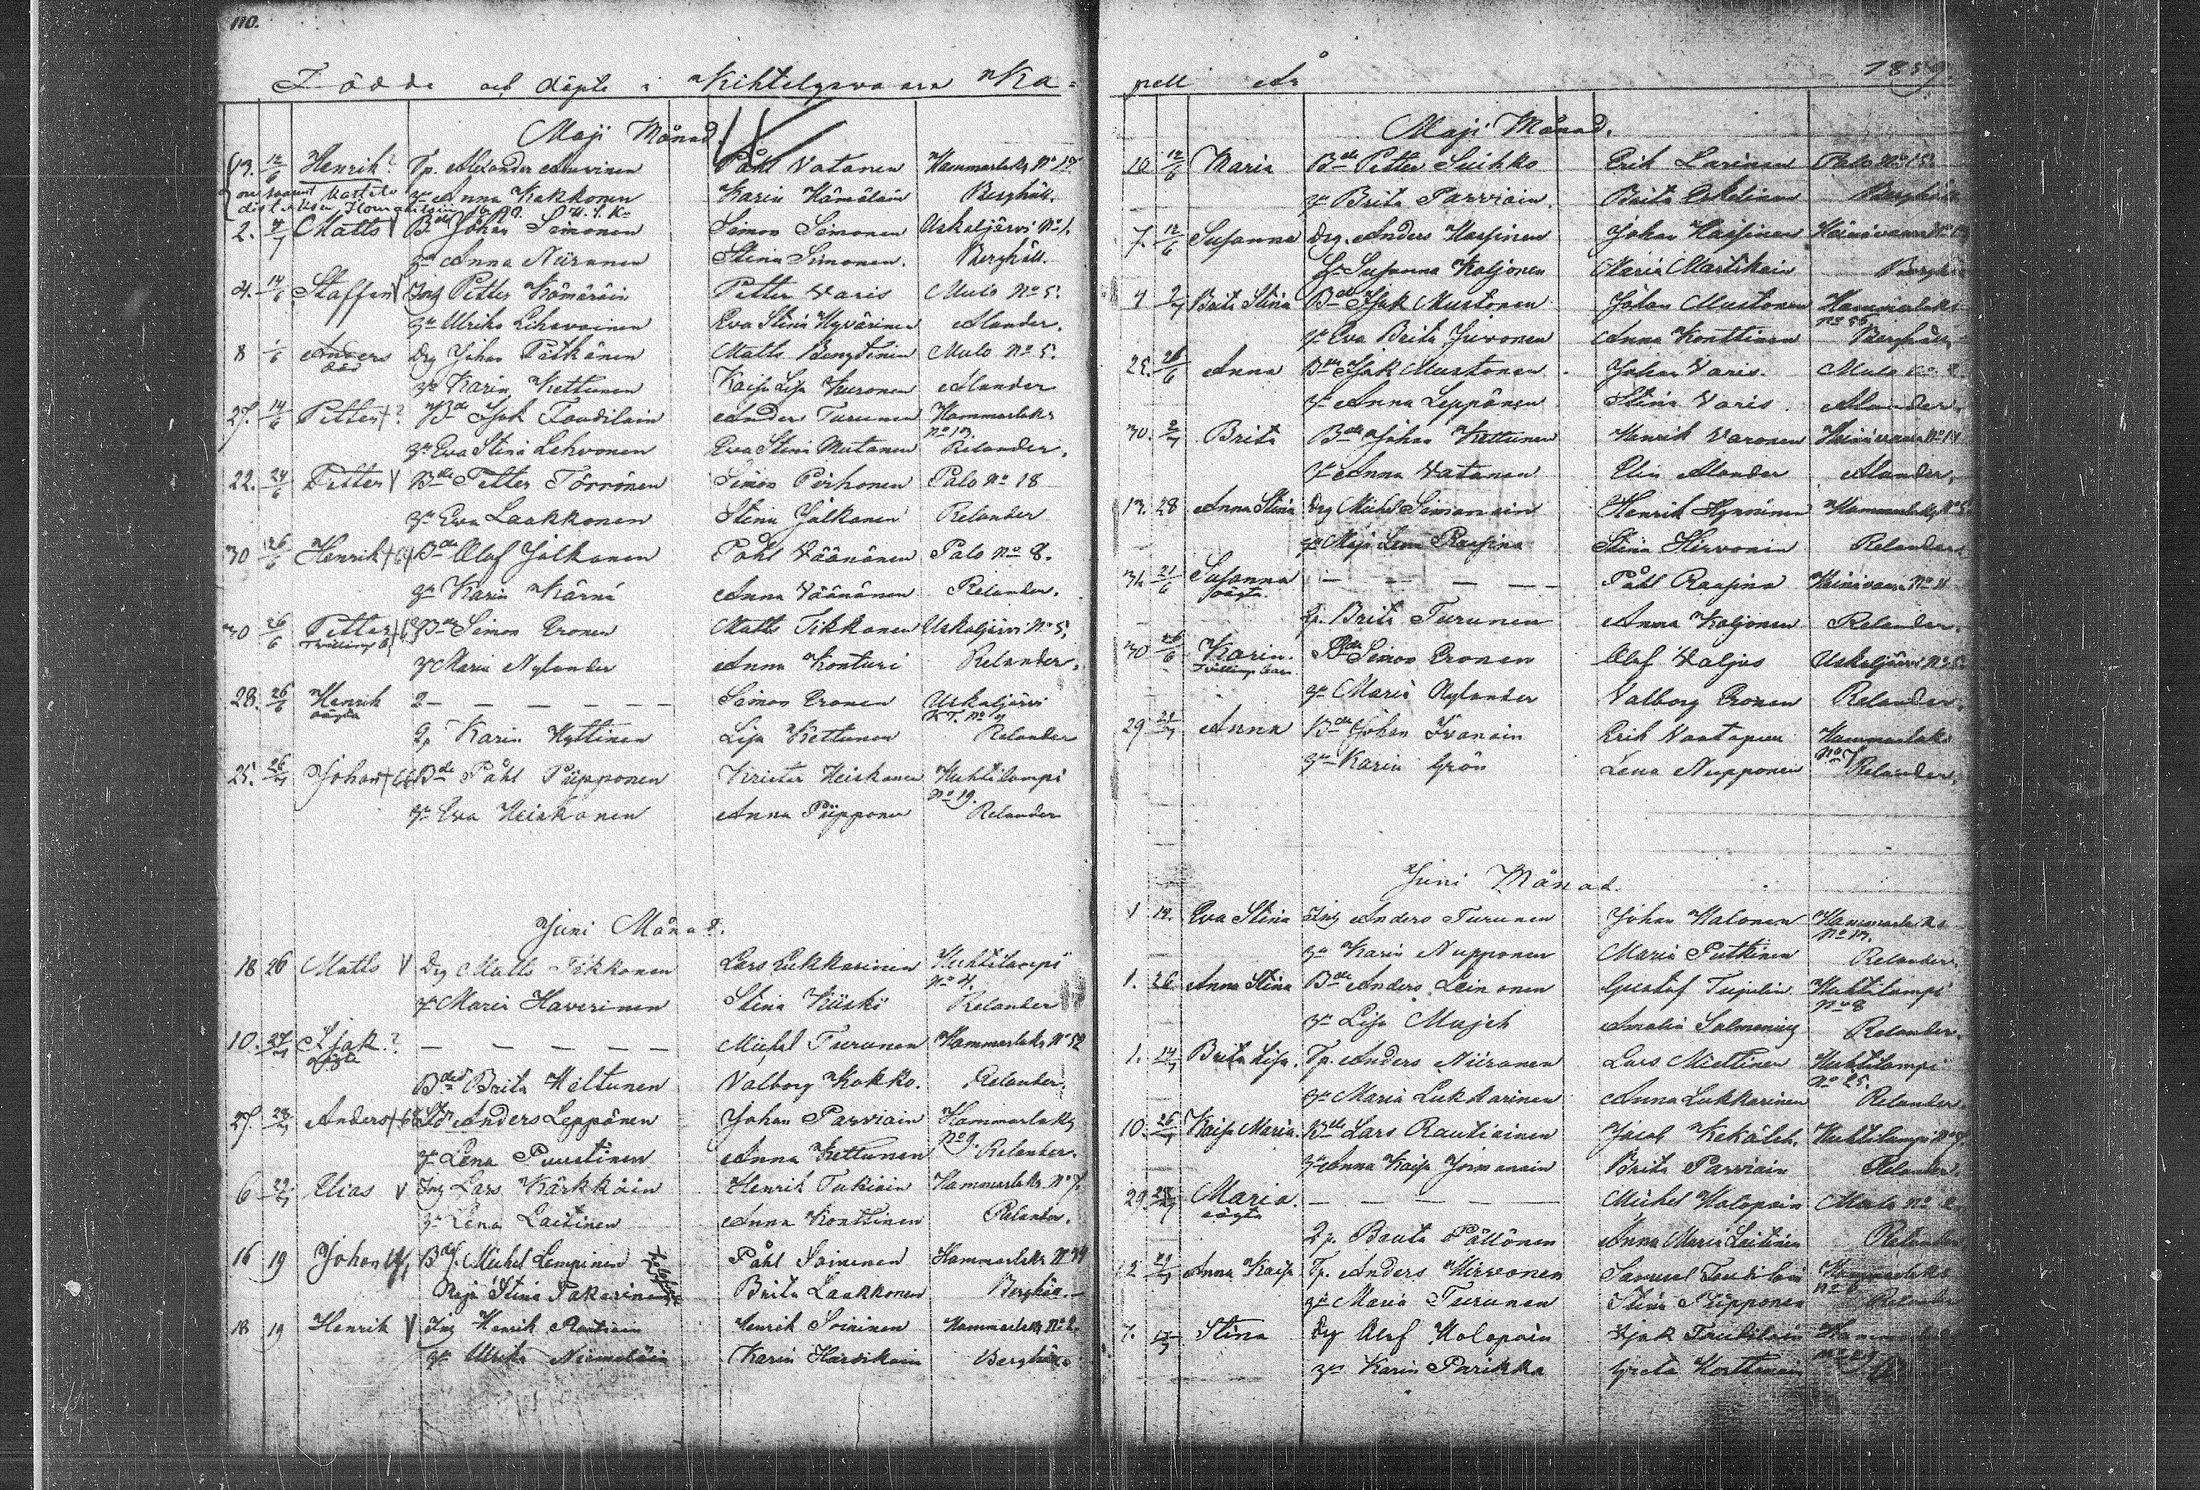 110.
Födde och döpte i Kihtelyswaara Ka=
Maji Månad
13. 12/6 Henrik? Tp. Alexander Auvinen Påhl Vatanen Hammarlaks No 17.
hu Anna Kakkonen Karin Hämäläin Berghäll.
2. 9/7 Matts V Bde Johan Simonen Simon Simonen Uskaljärvi No 1.
hu Anna Niiranen Stina Simonen. Berghäll.
4. 14/6 Staffan V Inh Petter Kömäräin Petter Varis Mulo No 5.
hu Ulrika Lihavainen Eva Stina Hyvärinen Alander.
8 /6 Anders Drg Johan Pätkänen Matts Bengtinin Mulo No 5.
död
hu Karin Kettunen Kaisa Lisa Kuronen Alander
27. 14/6 Petter +? Bde Isak Toudilain Ander Turunen Hammarlaks
No 13.
hu Eva Stina Lehvonen Eva Stina Mutanen Relander.
22. 24/6 Petter V Bde Petter Törrönen Simon Pirhonen Palo No 18
hu Eva Laakkonen Stina Jalkanen Relander
30 26/6 Henrik + Bde Olaf Jalkanen Påhl Väänänen Palo No 8.
hu Karin Kärnä Anna Väänänen Relander.
30 26/6 Petter + Bde Simon Eronen Matts Tikkanen Uskaljärvi No 5.
Tvilling b.
hu Maria Nylander Anna Konturi Relander.
28. 26/6 Henrik 2 — — — — — Simon Eronen Uskaljärvi
oägta
Qp Karin Hyttinen Lisa Kettunen Relander
25. 26/7 Johan + Bde Påhl Piipponen Krister Heiskanen Huhtilampi
No 19.
hu Eva Heiskanen Anna Piipponen Relander
Juni Månad.
18 26 Matts V Drg Matts Tikkanen Lars Lukkarinen Huhtilampi
No 4.
hu Maria Haverinen Stina Kiiski Relander
10. 27/7 Isak? — — — — — Michel Turunen Hammarlaks No 52
oägta
Bdes Brita Heltunen Valborg Kokko. Relander.
27. 28/7 Anders + Anders Leppänen Johan Parviain Hammarlaks
No 9.
hu Lena Puustinen Anna Kettunen Relander.
6 22/7 Elias V Inh Lars Kärkkäin Henrik Tukiain Hammarlaks No 7.
hu Lena Laitinen Anna Konttinen Relander.
16 19 Johan Michel Lempinen Påhl Soininen Hammarlaks
Maja Stina Pakarinen Brita Laakkonen Berghäll
18 19 Henrik V Inh Henrik Rautiain Henrik Soininen Hammarlaks No 2.
hu Ulrika Niemeläin Karin Harsikain Berghäll
pell År 1859.
Maji Månad.
10 12/6 Maria Bde Petter Suihko Erik Larinen Palo No 15.
hu Brita Parviain. Brita Eskelinen Berghäll
7. 12/6 Susanna Drg. Anders Hassinen Johan Hassinen Heinävaara
hu Susanna Koljonen Maria Martikain Berghäll
4 2/7 Brita Stina Bde Isak Mustonen Johan Mustonen Hammarlaks
No 56
hu Eva Brita Juvonen Anna Konttinen Berghäll
25. 26/6 Anna Bde Isak Mustonen Johan Varis. Mulo
hu Anna Leppänen Stina Varis. Alander.
30. 2/7 Brita Bde Johan Kettunen Henrik Varonen Heinävaara No 14
hu Anna Vatanen Elin Alander Alander.
13. 28 Anna Stina Drg Michel Simonain Henrik Hynninen Hammarlaks No 5
hu Maja Lena Raasina Stina Hirvonin Relander
31. 21/6 Susanna — — — — Påhl Raasina Heinävaara No 11
oägta.
Qp. Brita Turunen Anna Koljonen Relander.
30 26/6 Karin Bde Simon Eronen Olaf Valjus Uskaljärvi No 5.
Tvilling barn
hu Maria Nylander Valborg Eronen Relander.
29 24/7 Anna Bde Johan Ivanain Erik Vaatapuu Hammarlaks
No 7
hu Karin Grön Lena Nupponen Relander.
Juni Månad.
1 12. Eva Stina Inh Anders Turunen Johan Halonen Hammarlaks
No 13.
hu Karin Nupponen Maria Putkinen Relander.
1. 26 Anna Stina Bde Anders Leinonen Gustaf Tujulin Huhtilampi
No 8
hu Lisa Majch Amalia Salmening Relander.
1. 14/7 Brita Lisa. Tp. Anders Niiranen Lars Miettinen Huhtilampi
No 25.
hu Maria Lukkarinen Anna Lukkarinen Relander.
10. 26/7 Kaisa Maria. Bde Lars Rautiainen Jacob Kekäleh. Huhtilampi No 7.
hu Anna Kaisa Jormanain Brita Parviain Relander.
29. 28/7 Maria. — — — — Michel Holopain Mulo No 2.
oägta
Qp. Beata Pällönen Anna Maria Laitinen Relander
12 21/7 Anna Kaisa Tp. Anders Hirvonen Samuel Toudilain Hammarlaks
No 6
hu Maria Turunen Stina Piipponen Relander
7. 17/7 Stina Drg Olof Holopain Isak Toudilain
hu Karin Parikka Greta Konttinen